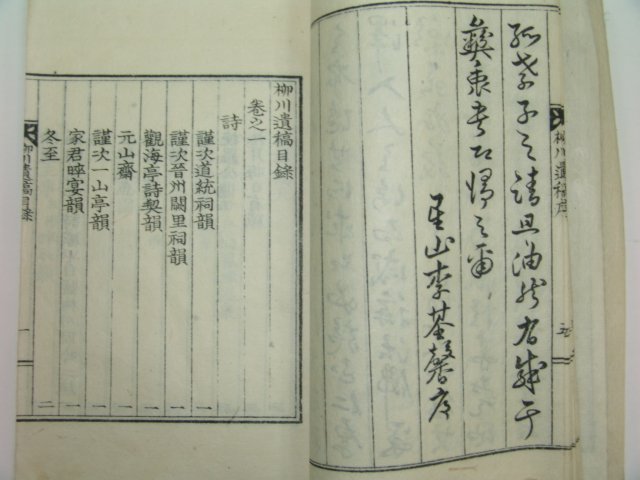 孤哀子之請且油然有感于
彝衷書以歸之爾
星山李基馨序
柳川遺稿序
柳川遺稿目錄
卷之一
詩
謹次道統祠韻 一
謹次晉州闕里祠韻 一
觀海亭詩契韻 一
元山齋 一
謹次一山亭韻 一
家君晬宴韻 一
冬至 二
柳川遺稿目錄 一